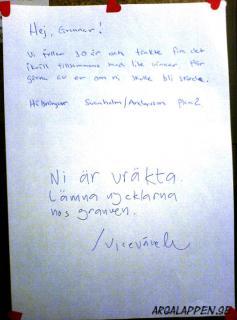 Hej, Grannar!
Vi fyller 30 år och tänkte fira det
ikväll tillsammans med lite vänner. Hör
gärna av er om ni skulle bli störda.
Hälsningar Svanholm/Andersson Plan 2
Ni är vräkta.
Lämna nycklarna
hos grannen.
/Vicevärden
ARGALAPPEN.SE